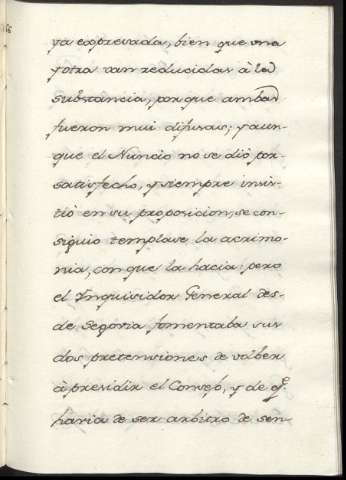 ya expresada, bien que una
y otra van reducidas à la
substancia, porque ambas
fueron mui difusas; y aun-
que el Nuncio no se diò por
satisfecho, y siempre insis-
tiò en su proposicion, se con-
siguio templase la acrimo-
nia, con que la hacia: pero
el Ynquisidor General des-
de Segovia fomentaba sus
dos pretensiones de volver
à presidir el Consejo, y de qe.
haria de ser arbitro de sen-